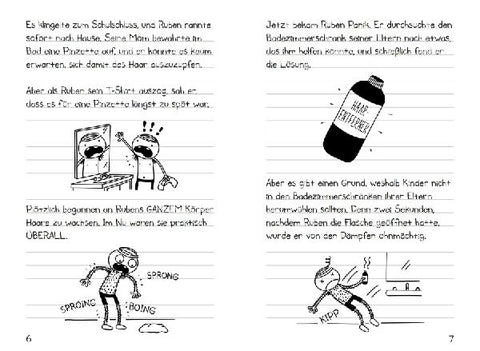 Es klingelte zum Schulschluss, und Ruben rannte
sofort nach Hause. Seine Mom bewahrte im
Bad eine Pinzette auf, und er konnte es kaum
erwarten, sich damit das Haar auszuzupfen.
Aber als Ruben sein T-Shirt auszog, sah er,
dass es für eine Pinzette längst zu spät war.
Plötzlich begannen an Rubens GANZEM Körper
Haare zu wachsen. Im Nu waren sie praktisch
ÜBERALL.
SPRONG
SPROING
BOING
6
Jetzt bekam Ruben Panik. Er durchsuchte den
Badezimmerschrank seiner Eltern nach etwas,
das ihm helfen könnte, und schließlich fand er
die Lösung.
HAAR
ENTFERNER
Aber es gibt einen Grund, weshalb Kinder nicht
in den Badezimmerschränken ihrer Eltern
herumwühlen sollten. Denn zwei Sekunden,
nachdem Ruben die Flasche geöffnet hatte,
wurde er von den Dämpfen ohnmächtig.
KIPP
7